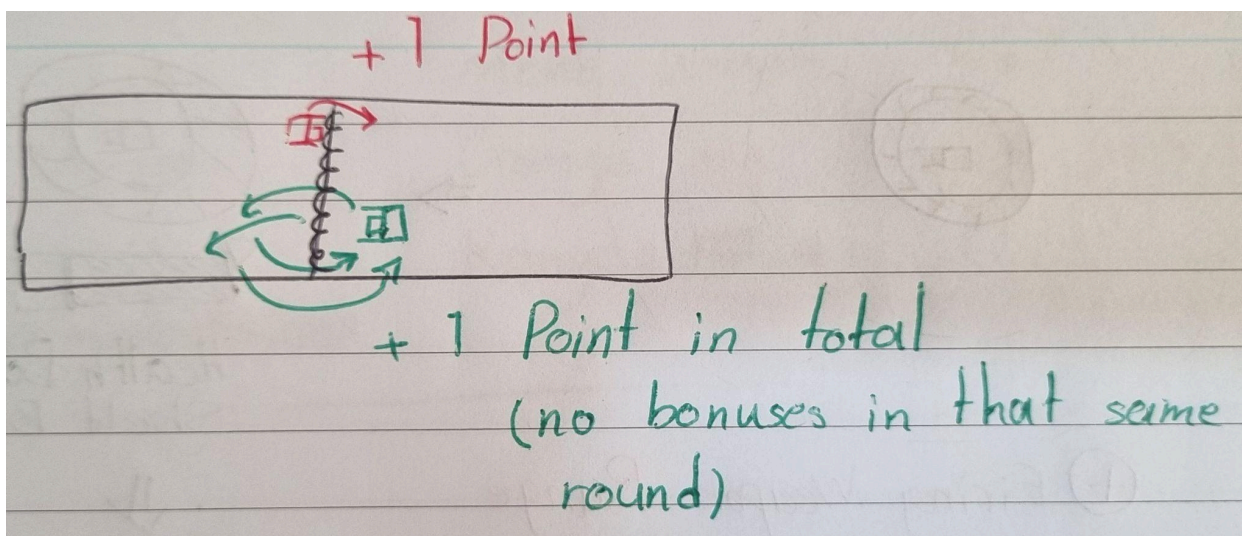 + 1 Point
+ 1 Point in total
(no bonuses in that same
round)